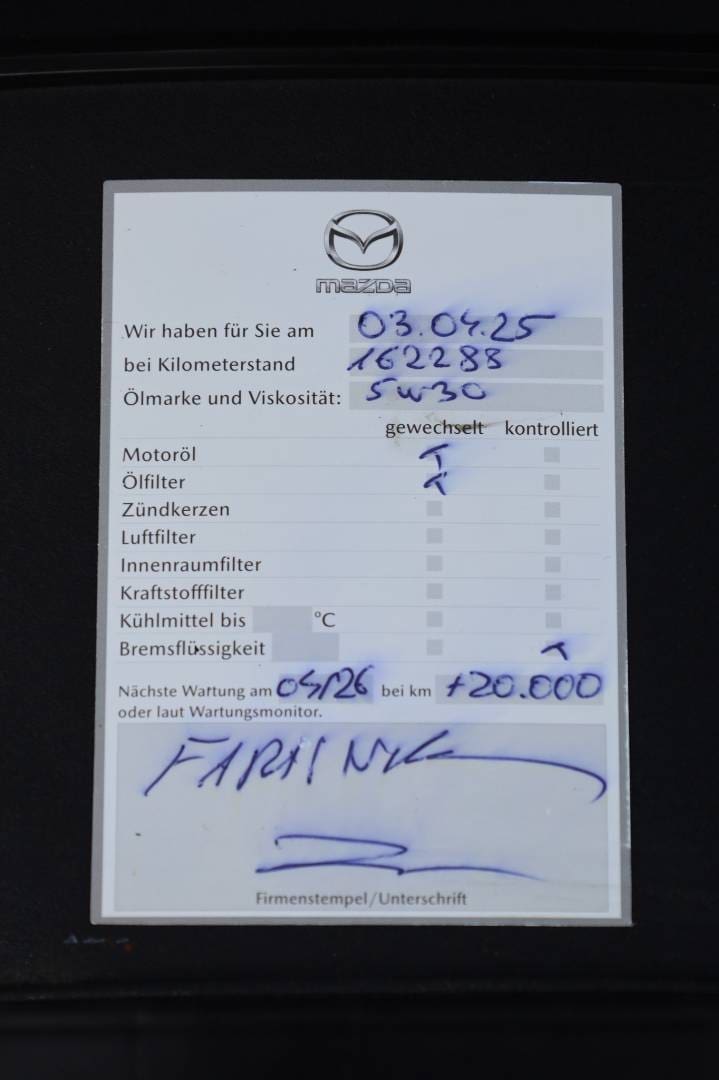 mazda
Wir haben für Sie am 03.04.25
bei Kilometerstand 162288
Ölmarke und Viskosität: 5w30
gewechselt kontrolliert
Motoröl
Ölfilter
Zündkerzen
Luftfilter
Innenraumfilter
Kraftstofffilter
Kühlmittel bis °C
Bremsflüssigkeit
Nächste Wartung am 04/26 bei km +20.000
oder laut Wartungsmonitor.
Firmenstempel/Unterschrift